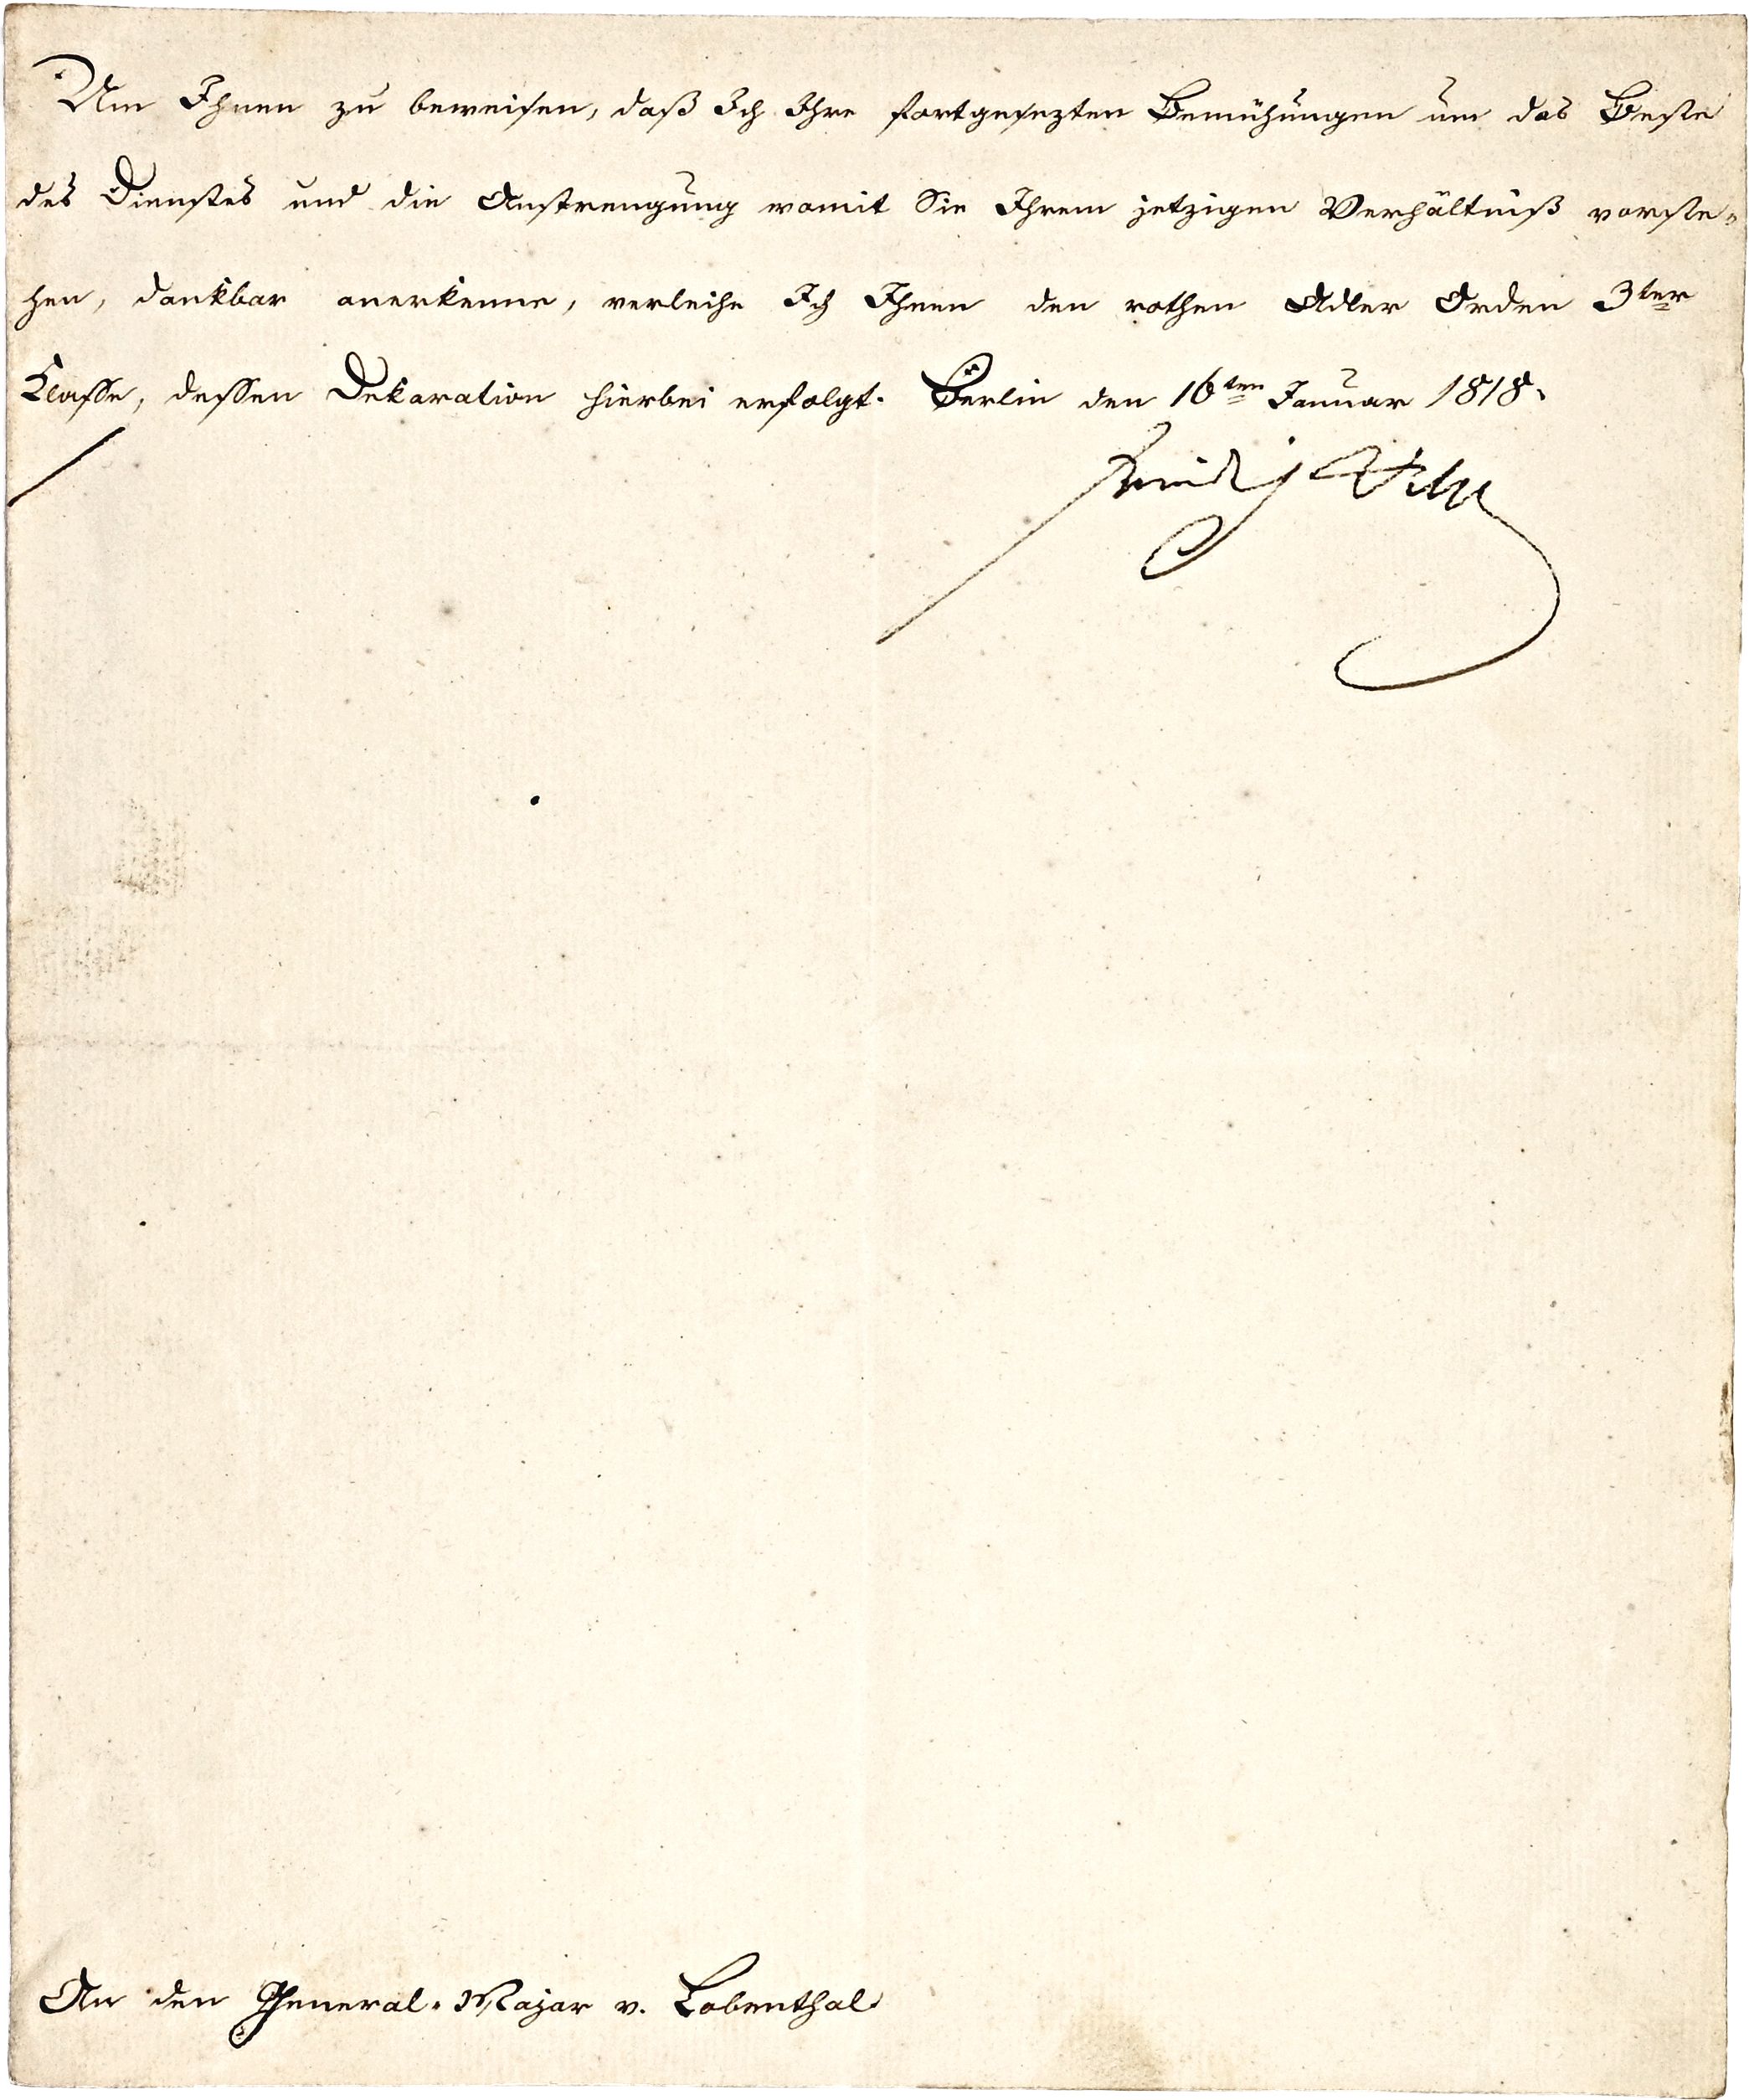 Um Ihnen zu beweisen, daß Ich Ihre fortgesezten Bemühungen um das Beste
des Dienstes und die Anstrengung womit Sie Ihrem jetzigen Verhältniß vorste-
hen, dankbar anerkenne, verleihe Ich Ihnen den rothen Adler Orden 3ter
Classe, dessen Dekoration hierbei erfolgt. Berlin den 16ten Januar 1818.
Friedrich Wilhelm
An den General-Major v. Lobenthal